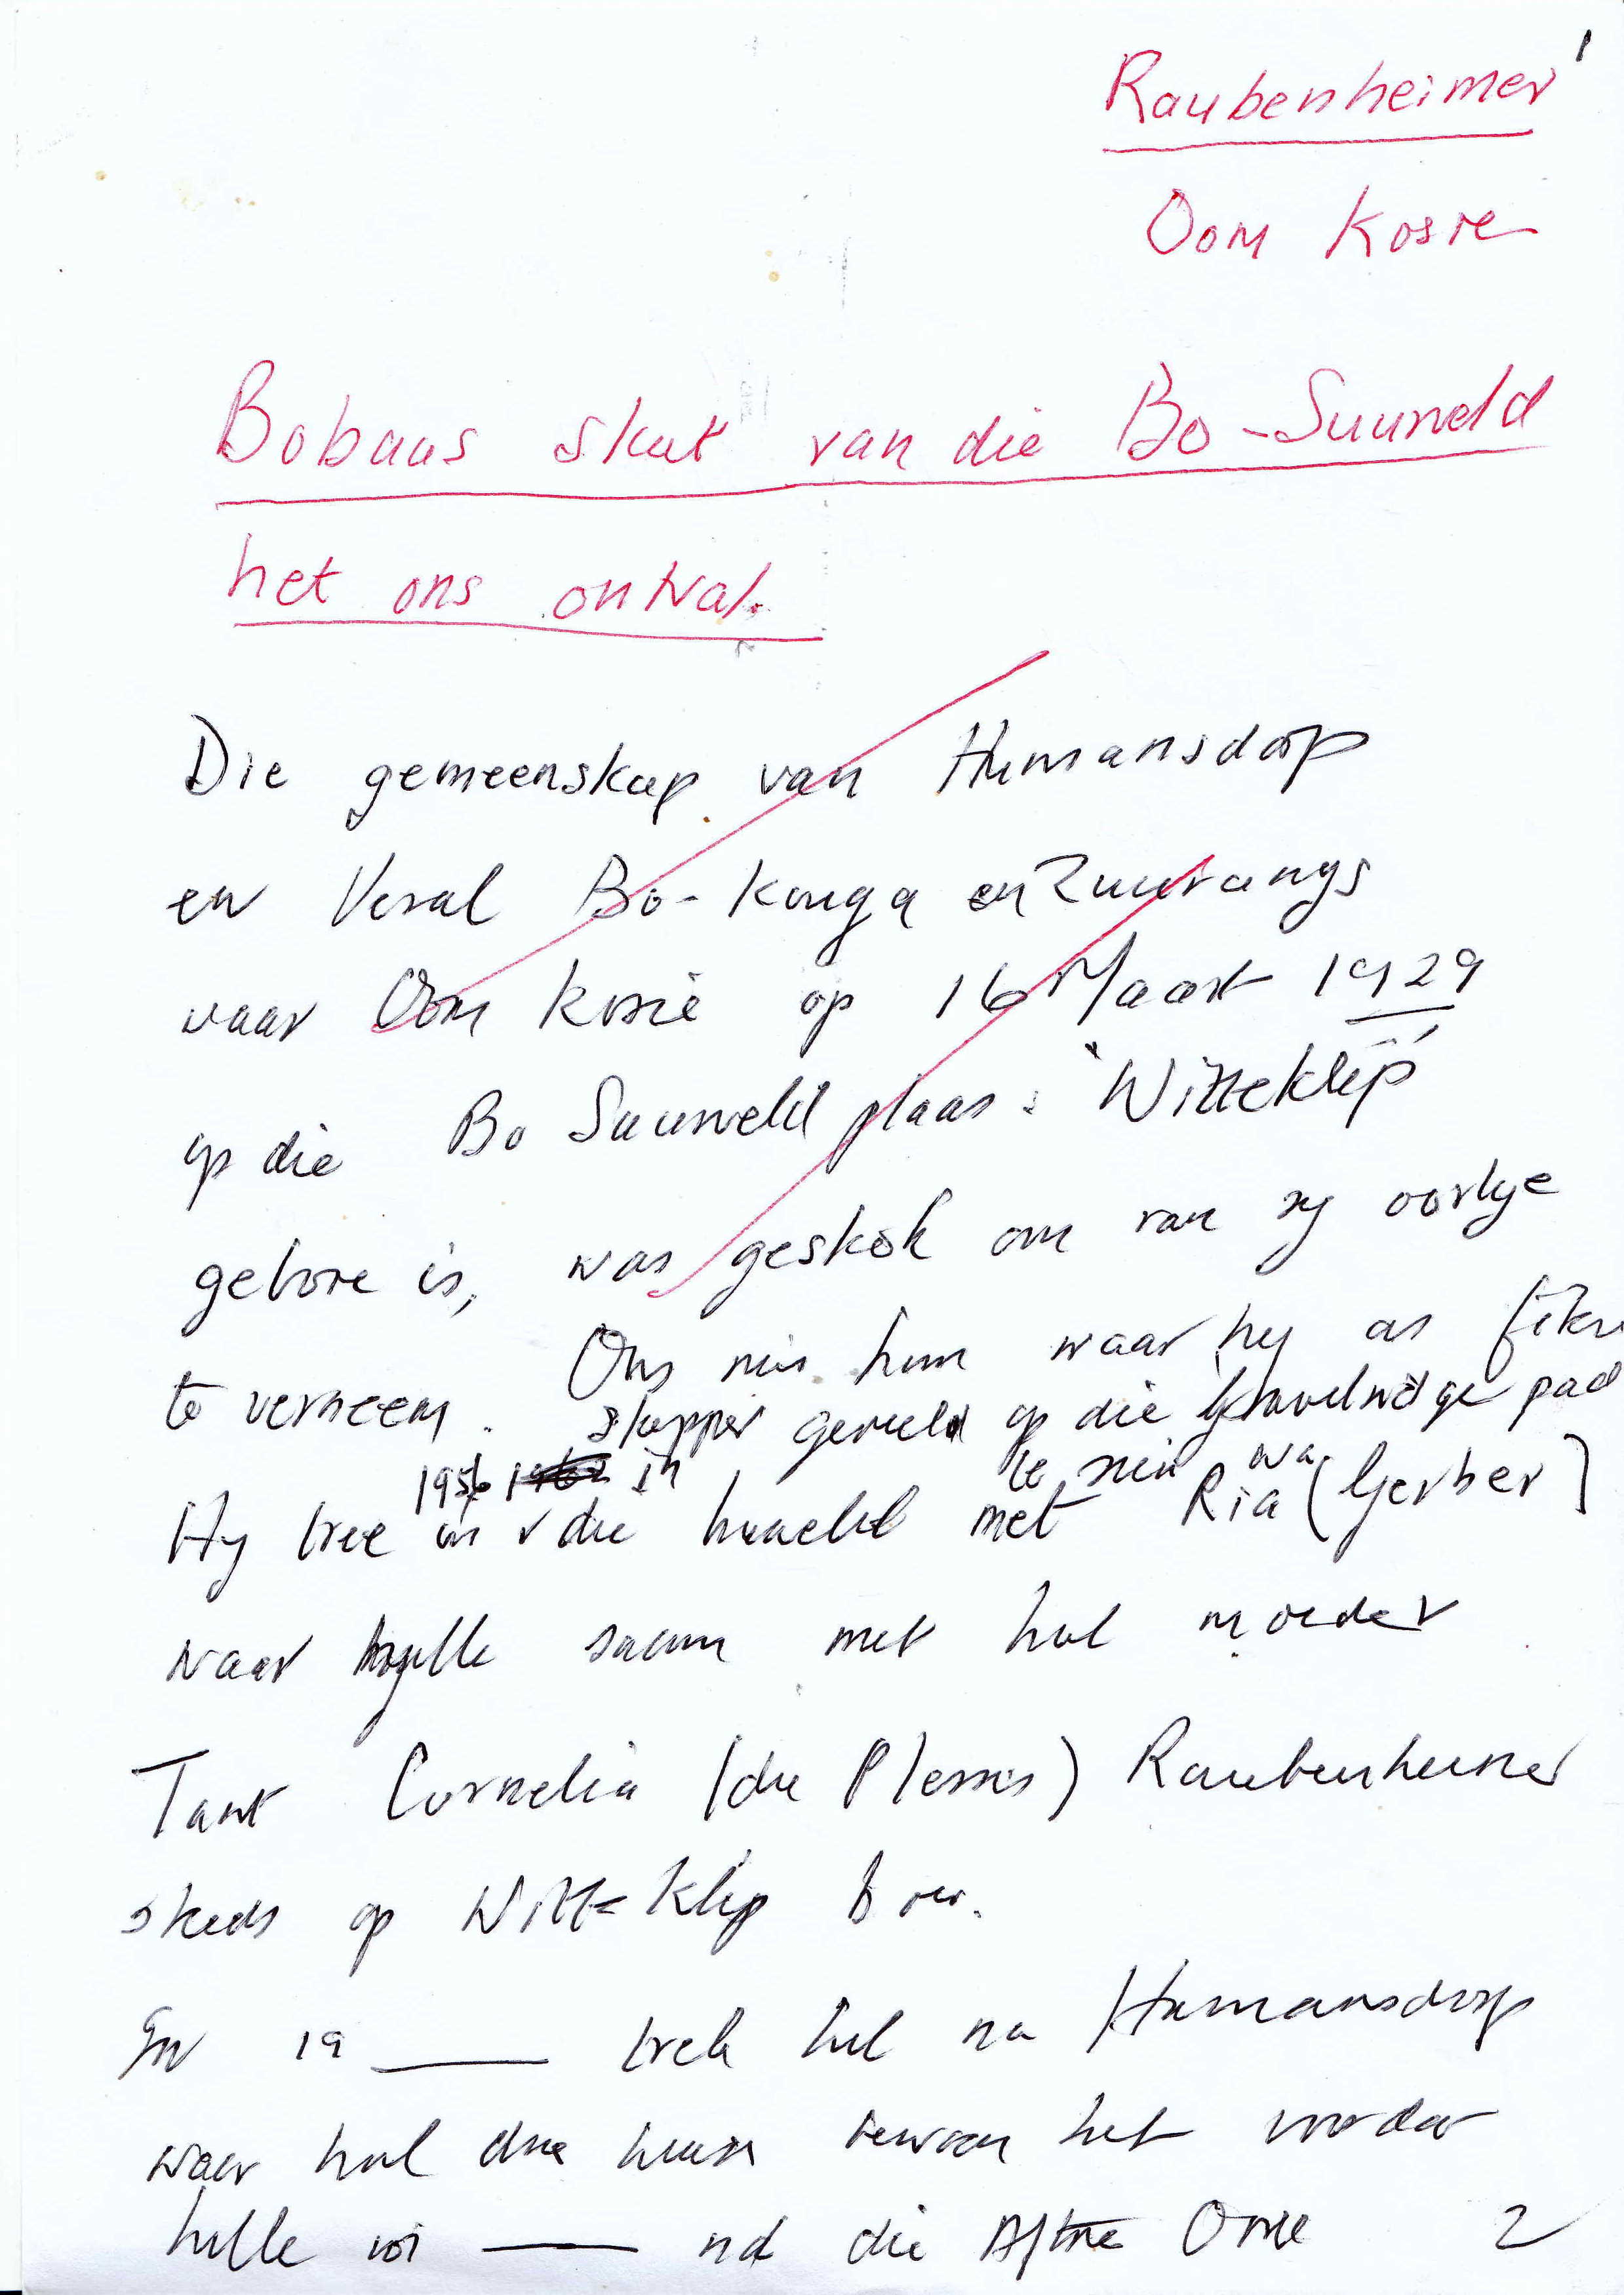 1
Raubenheimer
Oom Kosie
Bobaas skut van die Bo-Suurveld
het ons ontval.
Die gemeenskap van Humansdorp
en Veral Bo-Kouga en Zuurangs
waar Oom Kosie op 16 Maart 1929
op die Bo Suurveld plaas: "Witteklip"
gebore is, was geskok om van sy oorlye
te verneem. Ons mis hom waar hy as
stapper gereeld op die pad
te sien was
1956 in
Hy tree in die huwelik met Ria (Gerber)
waar hulle saam met hul moeder
Tant Cornelia (du Plessis) Raubenheimer
steeds op Witteklip boer.
In 19 ___ trek hul na Humansdorp
waar hul drie huise bewoon het voordat
hulle in ___ na die Aftree Oord 2